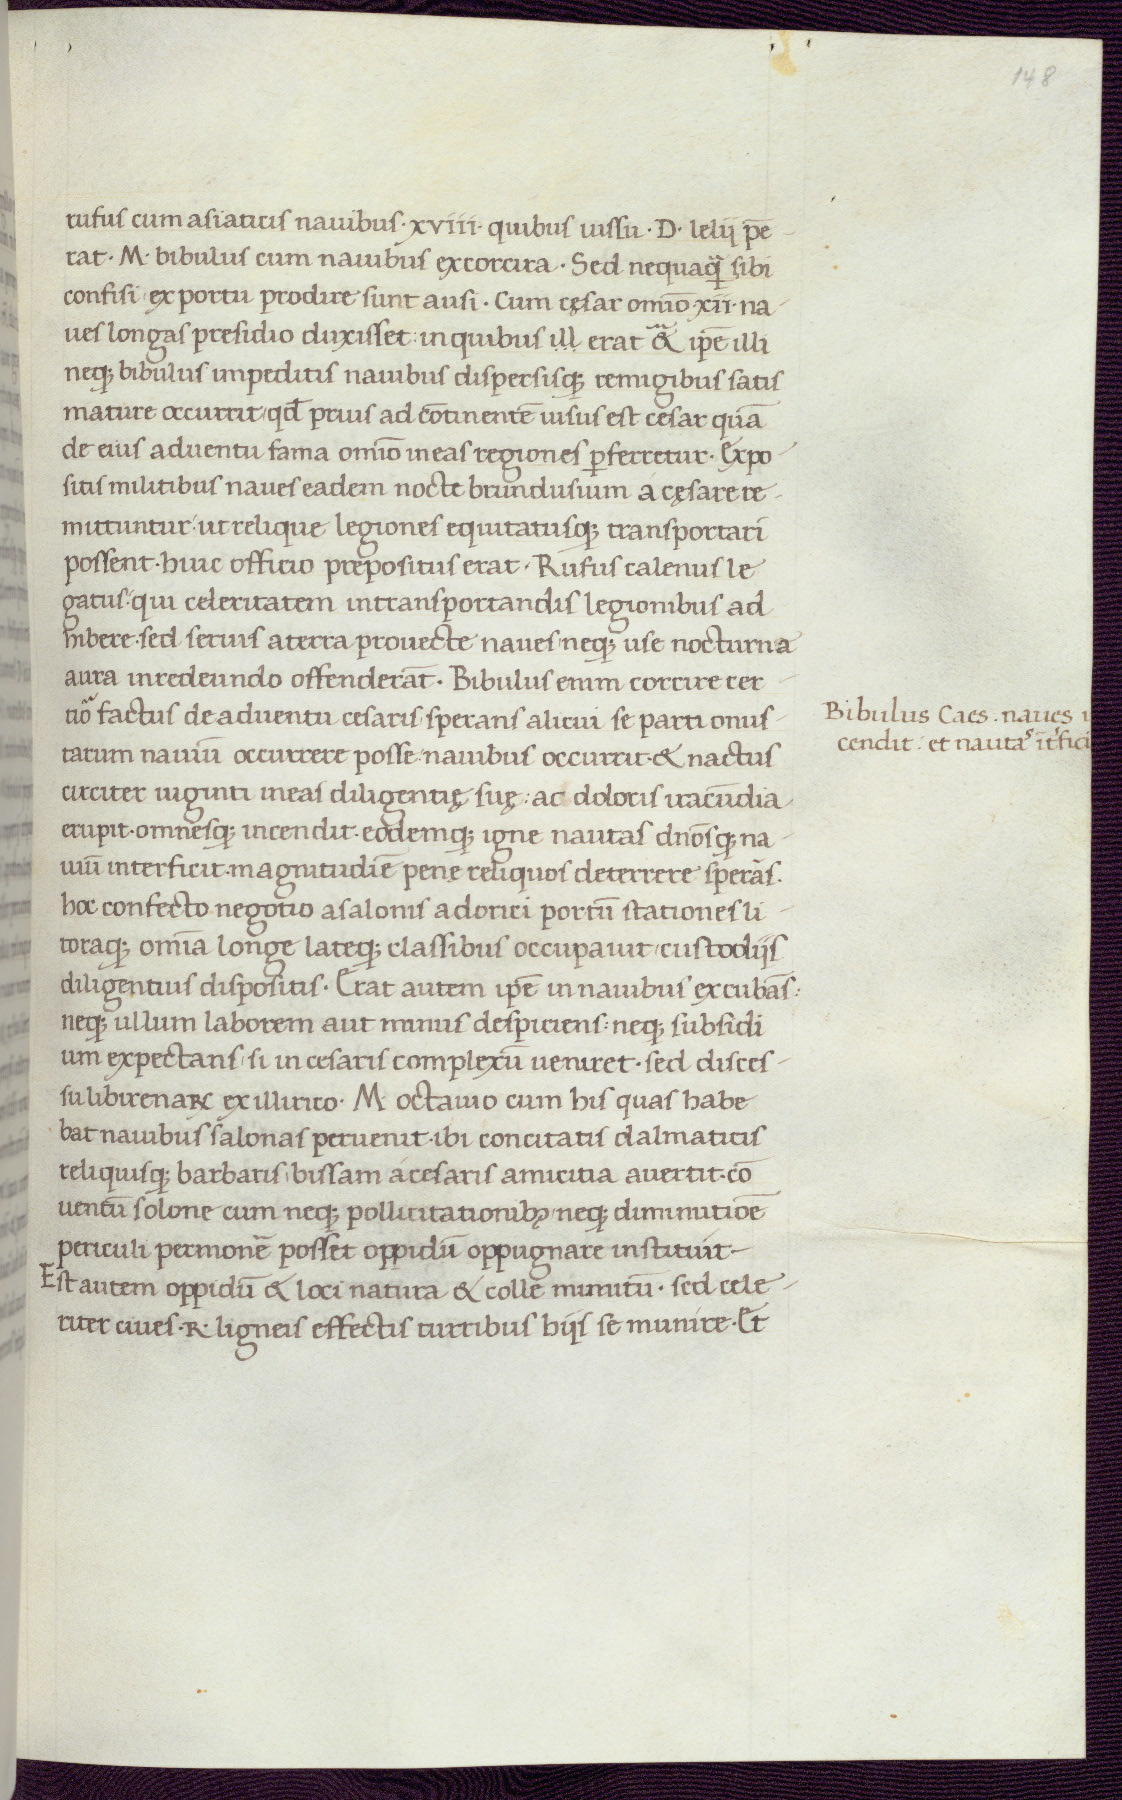 148
rufus cum asiaticis nauibus · xviii · quibus iussu · D · lelij p̄e
rat · M · bibulus cum nauibus ex corcira · Sed nequaq̃ sibi
confisi ex portu prodire sunt ausi · Cum cęsar omīo xii · na-
ues longas presidio duxisset : in quibus ill erat & ip̄e illi
neq; bibulus inpeditis nauibus dispersisq; remigibus satis
mature occurrit · qđ prius ad cōtinentē uisus est cesar quā
de eius aduentu fama omīo in eas regiones p̱ferretur · Expo-
sitis militibus naues eadem nocte brundusium a cęsare re-
mittuntur · ut relique legiones equitatusq; transportari
possent · huic officio prepositus erat · Rufus calenus le
gatus · qui celeritatem in transportandis legionibus ad
hibere · sed serius a terra prouecte naues neq; use nocturna
aura in redeundo offenderāt · Bibulus enim corcire cer
tiō factus de aduentu cesaris sperans alicui se parti onus-
tatum nauiū occurrere posse nauibus occurrit · & nactus
circiter uiginti in eas diligentię suę : ac doloris iracūdia
erupit · omnesq; incendit · eodemq; igne nautas dn̄osq; na-
uiū interficit · magnitudīe penę reliquos deterrere sperās ·
hoc confecto negotio a salonis ad orici portū stationes li-
toraq; omīa longe lateq; classibus occupauit · custodijs
diligentius dispositis · Erat autem ip̄e in nauibus excubās :
neq; ullum laborem aut minus despiciens : neq; subsidi
um expectans si in cesaris complexū ueniret · sed disces-
su libirenarc ex illirico · M octauio cum his quas habe
bat nauibus salonas peruenit · ibi concitatis dalmaticis
reliquisq; barbaris bissam a cesaris amicitia auertit · cō
uentū solone cum neq; pollicitationibꝫ neq; diminutiōe
periculi permon̄e posset oppidū oppugnare instituit -
Est autem oppidū & loci natura & colle munitū · sed cele-
riter ciues · R · ligneis effectis turribus hijs se munire · Et
Bibulus Caes . naues i
cendit : et nautas īt'fici